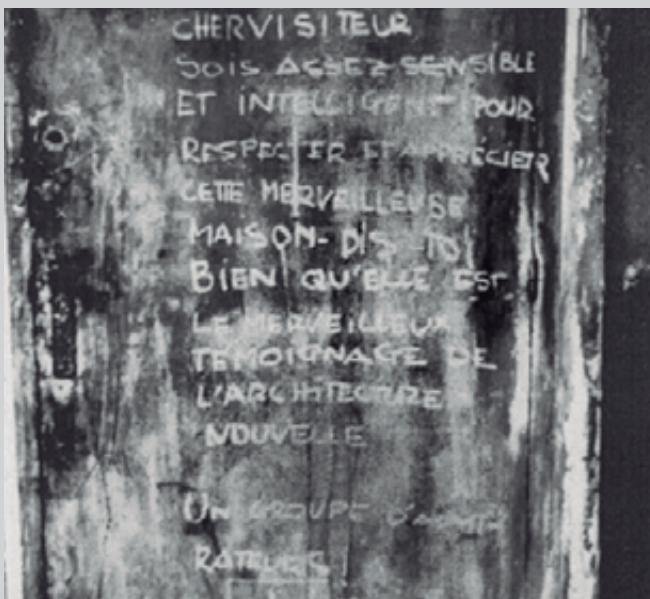 CHER VISITEUR
SOIS ASSEZ SENSIBLE
ET INTELLIGENT POUR
RESPECTER ET APPRÉCIER
CETTE MERVEILLEUSE
MAISON - DIS-TOI
BIEN QU'ELLE EST
LE MERVEILLEUX
TEMOIGNAGE DE
L'ARCHITECTURE
NOUVELLE
UN GROUPE D'ADMI-
RATEURS